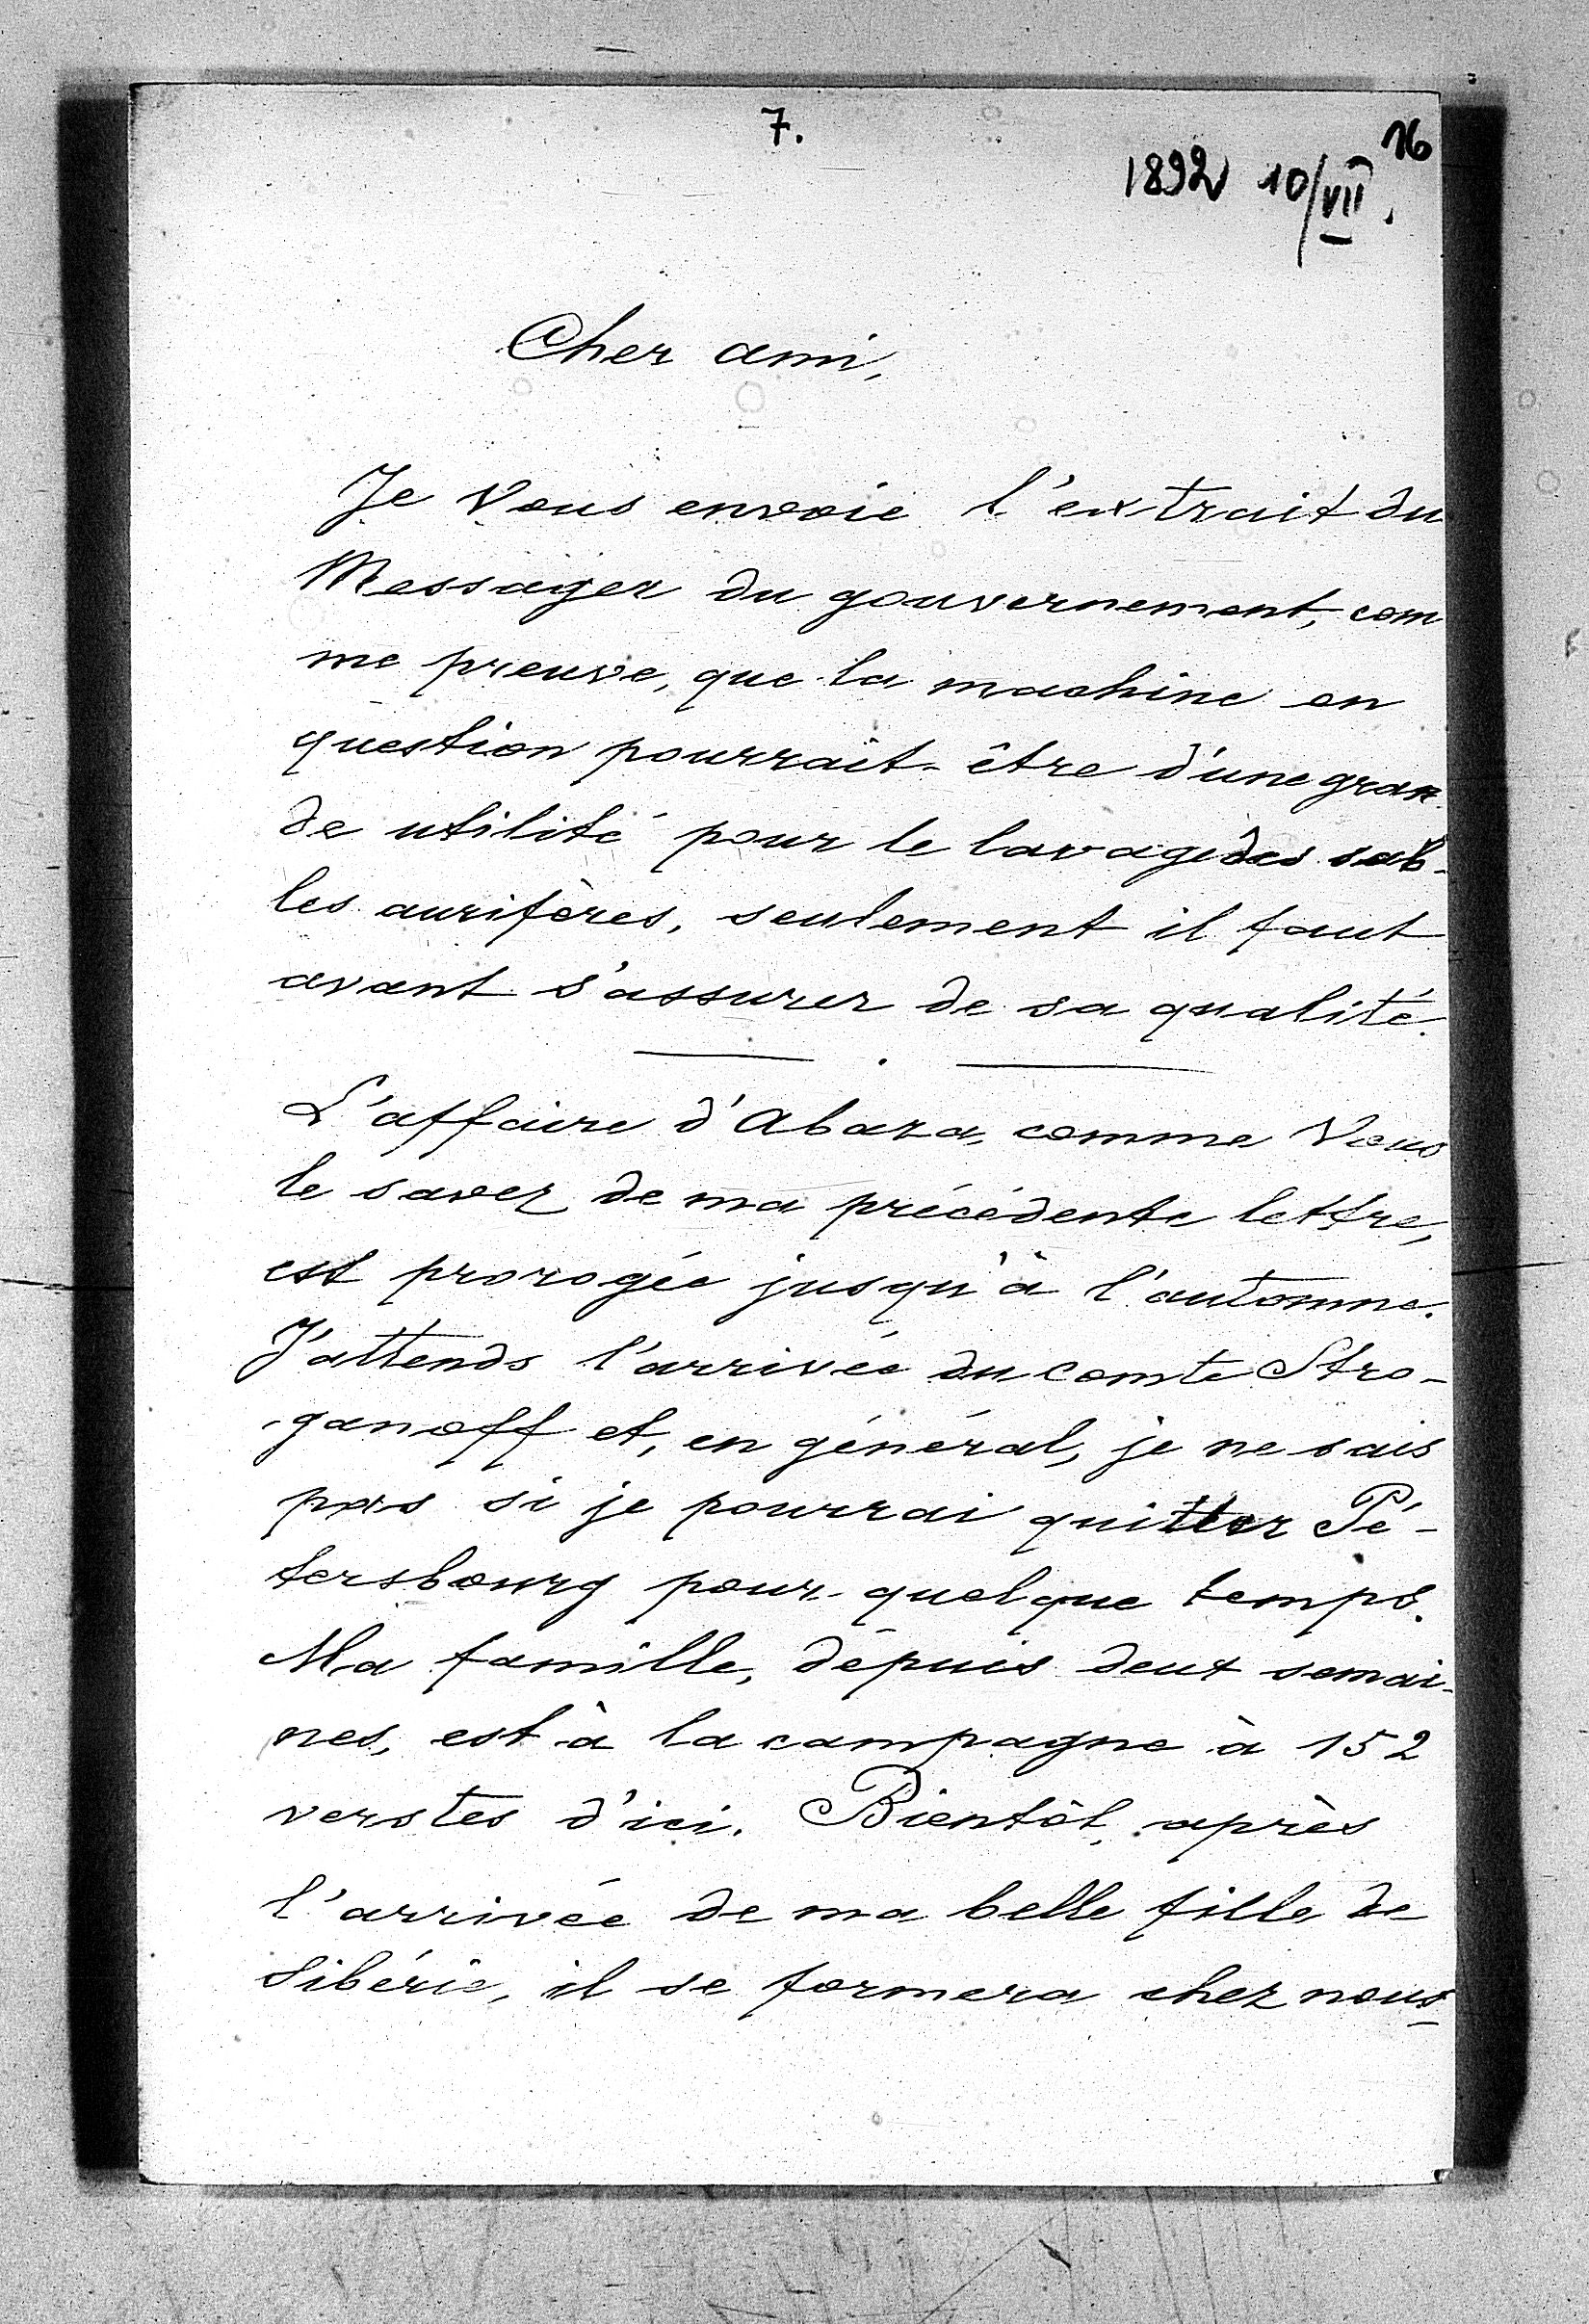 7.
16
1892 10/VII.
Cher ami,
Je Vous envoie l'extrait du
Messager du gouvernement, com
me preuve, que la machine en
question pourrait-être d'une gran
de utilité pour le lavage des sab-
les aurifères, seulement il faut
avant s'assurer de sa qualité.
L'affaire d'Abaza, comme Vous
le savez de ma précédente lettre,
est prorogée jusqu'à l'automne.
J'attends l'arrivée du comte Stro-
ganoff et, en général, je ne sais
pas si je pourrai quitter Pé-
tersbourg pour quelque temps.
Ma famille, dépuis deux semai-
nes, est à la campagne à 152
verstes d'ici. Bientôt, après
l'arrivée de ma belle fille de
Sibérie, il se formera chez nous